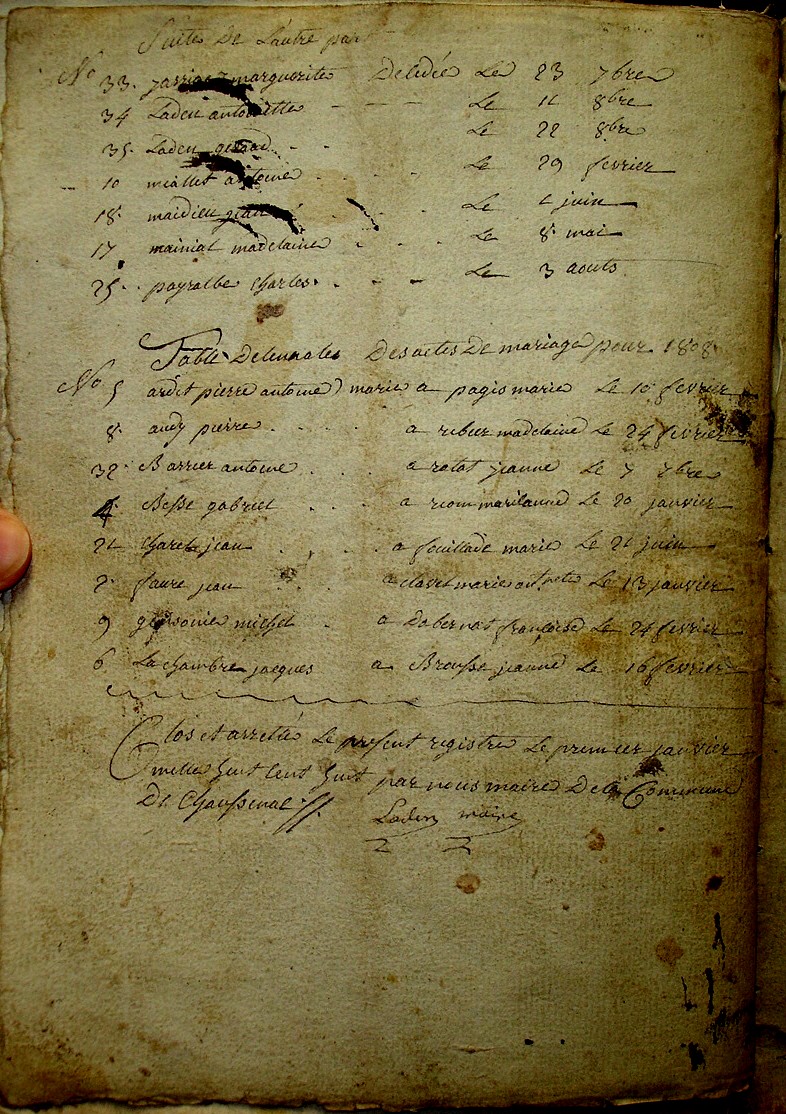 Suite De L'autre part
No 33. jarrige marguerite Delidée Le 23 7bre
34 Laden antoinette Le 11 8bre
35. Laden geraud Le 22 8bre
10 miallet antoine Le 29 fevrier
18. maidieu jean Le 2 juin
17 mainial madelaine Le 8. mai
25. payralbe charles. Le 3 aouts
Table Delennales Des actes De mariage pour 1808.
No 5 ardit pierre antoine marie a pagis marie Le 10 fevrier
8. audy pierre a ribier madelaine Le 24 fevrier
32. Barrier antoine a ratat jeanne Le 7 7bre
4. Besse gabriel a riom marianne Le 20 janvier
21 charel jean a fouillade marie Le 21 juin
2. faure jean a clavel marie antnete Le 13 janvier
9 michel a Dabernat francoise Le 24 fevrier
6 La chambre jacques a Brousse jeanne Le 16 fevrier
Clos et arretté Le present registre Le premier janvier
mille huit cent huit par nous maire De la Commune
De Chaussenac
Laden maire